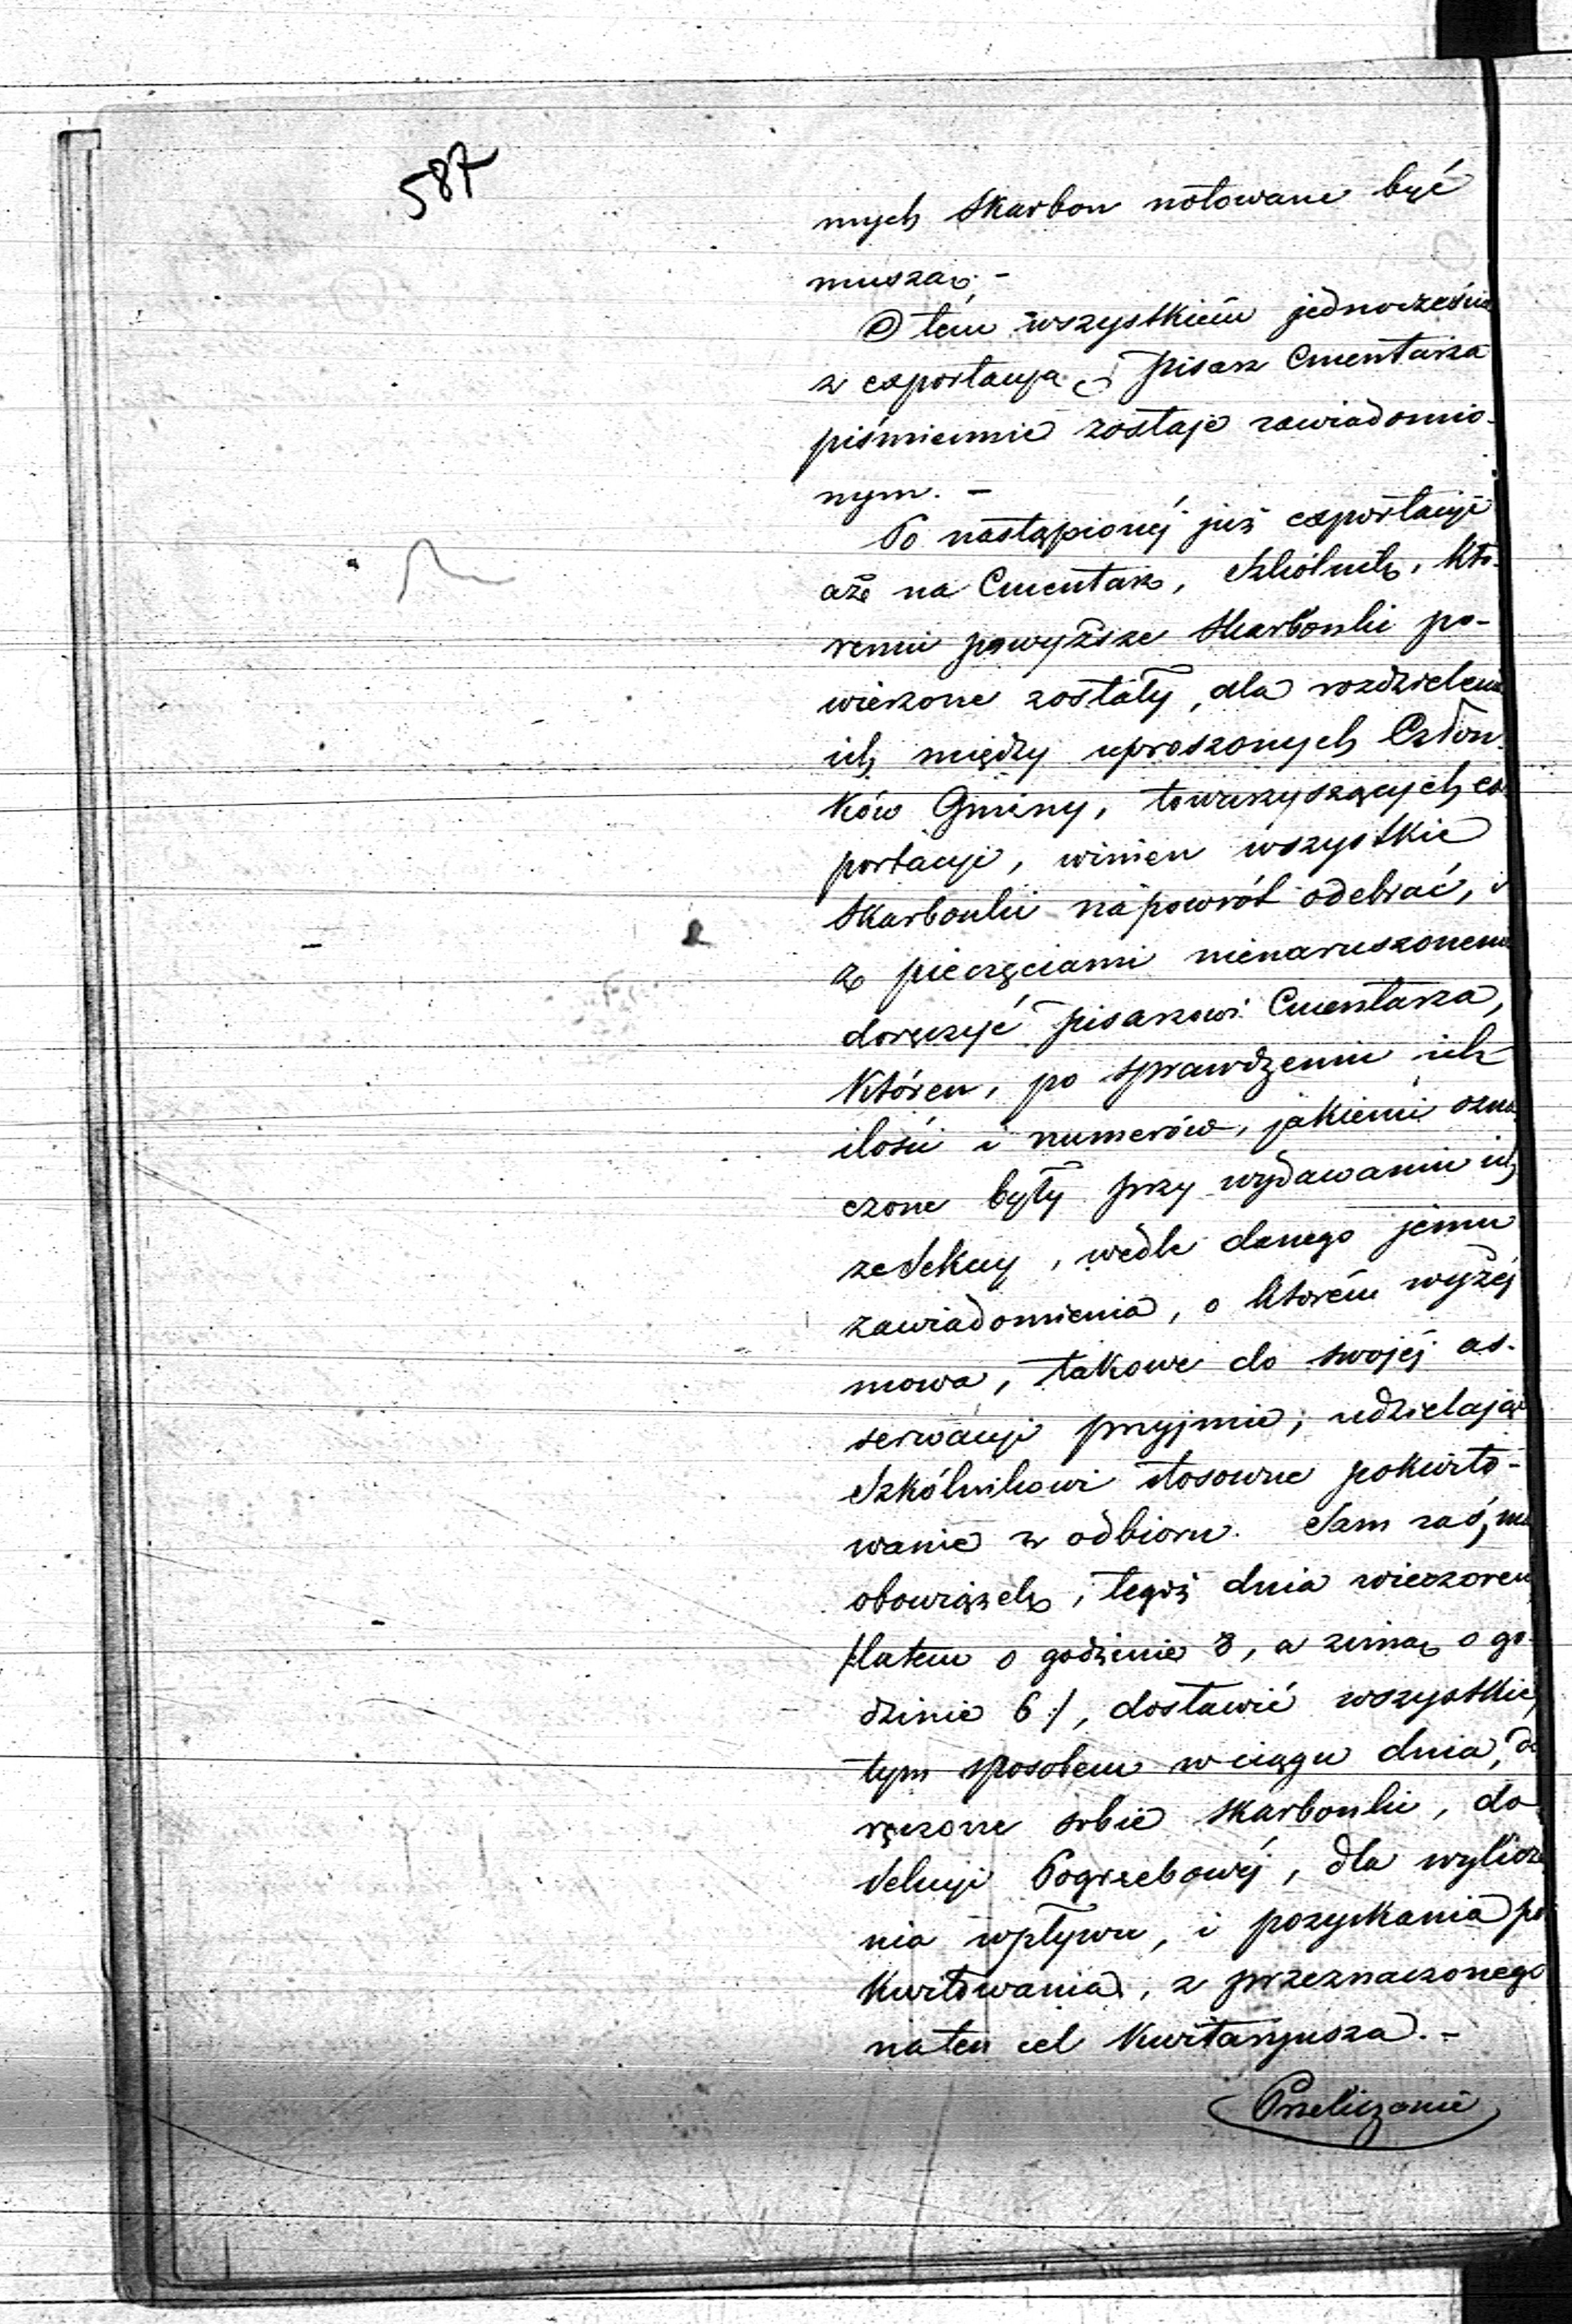 587
nych skarbon notowane być
muszą. -
O tém wszystkiém jednocześnie
z exportacyą i pisarz Cmentarza
piśmiennie zostaje zawiadomio-
nym. -
Po nastąpionéj już exportacyi
aże na Cmentarz, Szkólnik, któ-
remu powyższe skarbonki po-
wierzone zostały, dla rozdzielenia
ich między uproszonych Człon-
ków Gminy, towarzyszących ex-
portacyi, winien wszystkie
skarbonki napowrót odebrać, i
z pieczęciami nienaruszonemi
doręczyć pisarzowi Cmentarza,
któren, po sprawdzeniu ich
ilości i numerów, jakiemi ozna
czone były przy wydawaniu ich
ze Sekcyi, wedle danego jemu
zawiadomienia, o którém wyżéj
mowa, takowe do swojéj as-
serwacyi przyjmie, udzielając
Szkólnikowi stosowne pokwito-
wanie z odbioru. Sam zaś, ma
obowiązek, tegoż dnia wieczorem
/:latem o godzinie 8, a zimą o go-
dzinie 6:/, dostawić wszystkie,
tym sposobem w ciągu dnia, do
ręczone sobie skarbonki, do
Sekcyi Pogrzebowéj, dla wylicze
nia wpływu, i pozyskania po
kwitowania, z przeznaczonego
na ten cel kwitaryusza. -
Przeliczanie